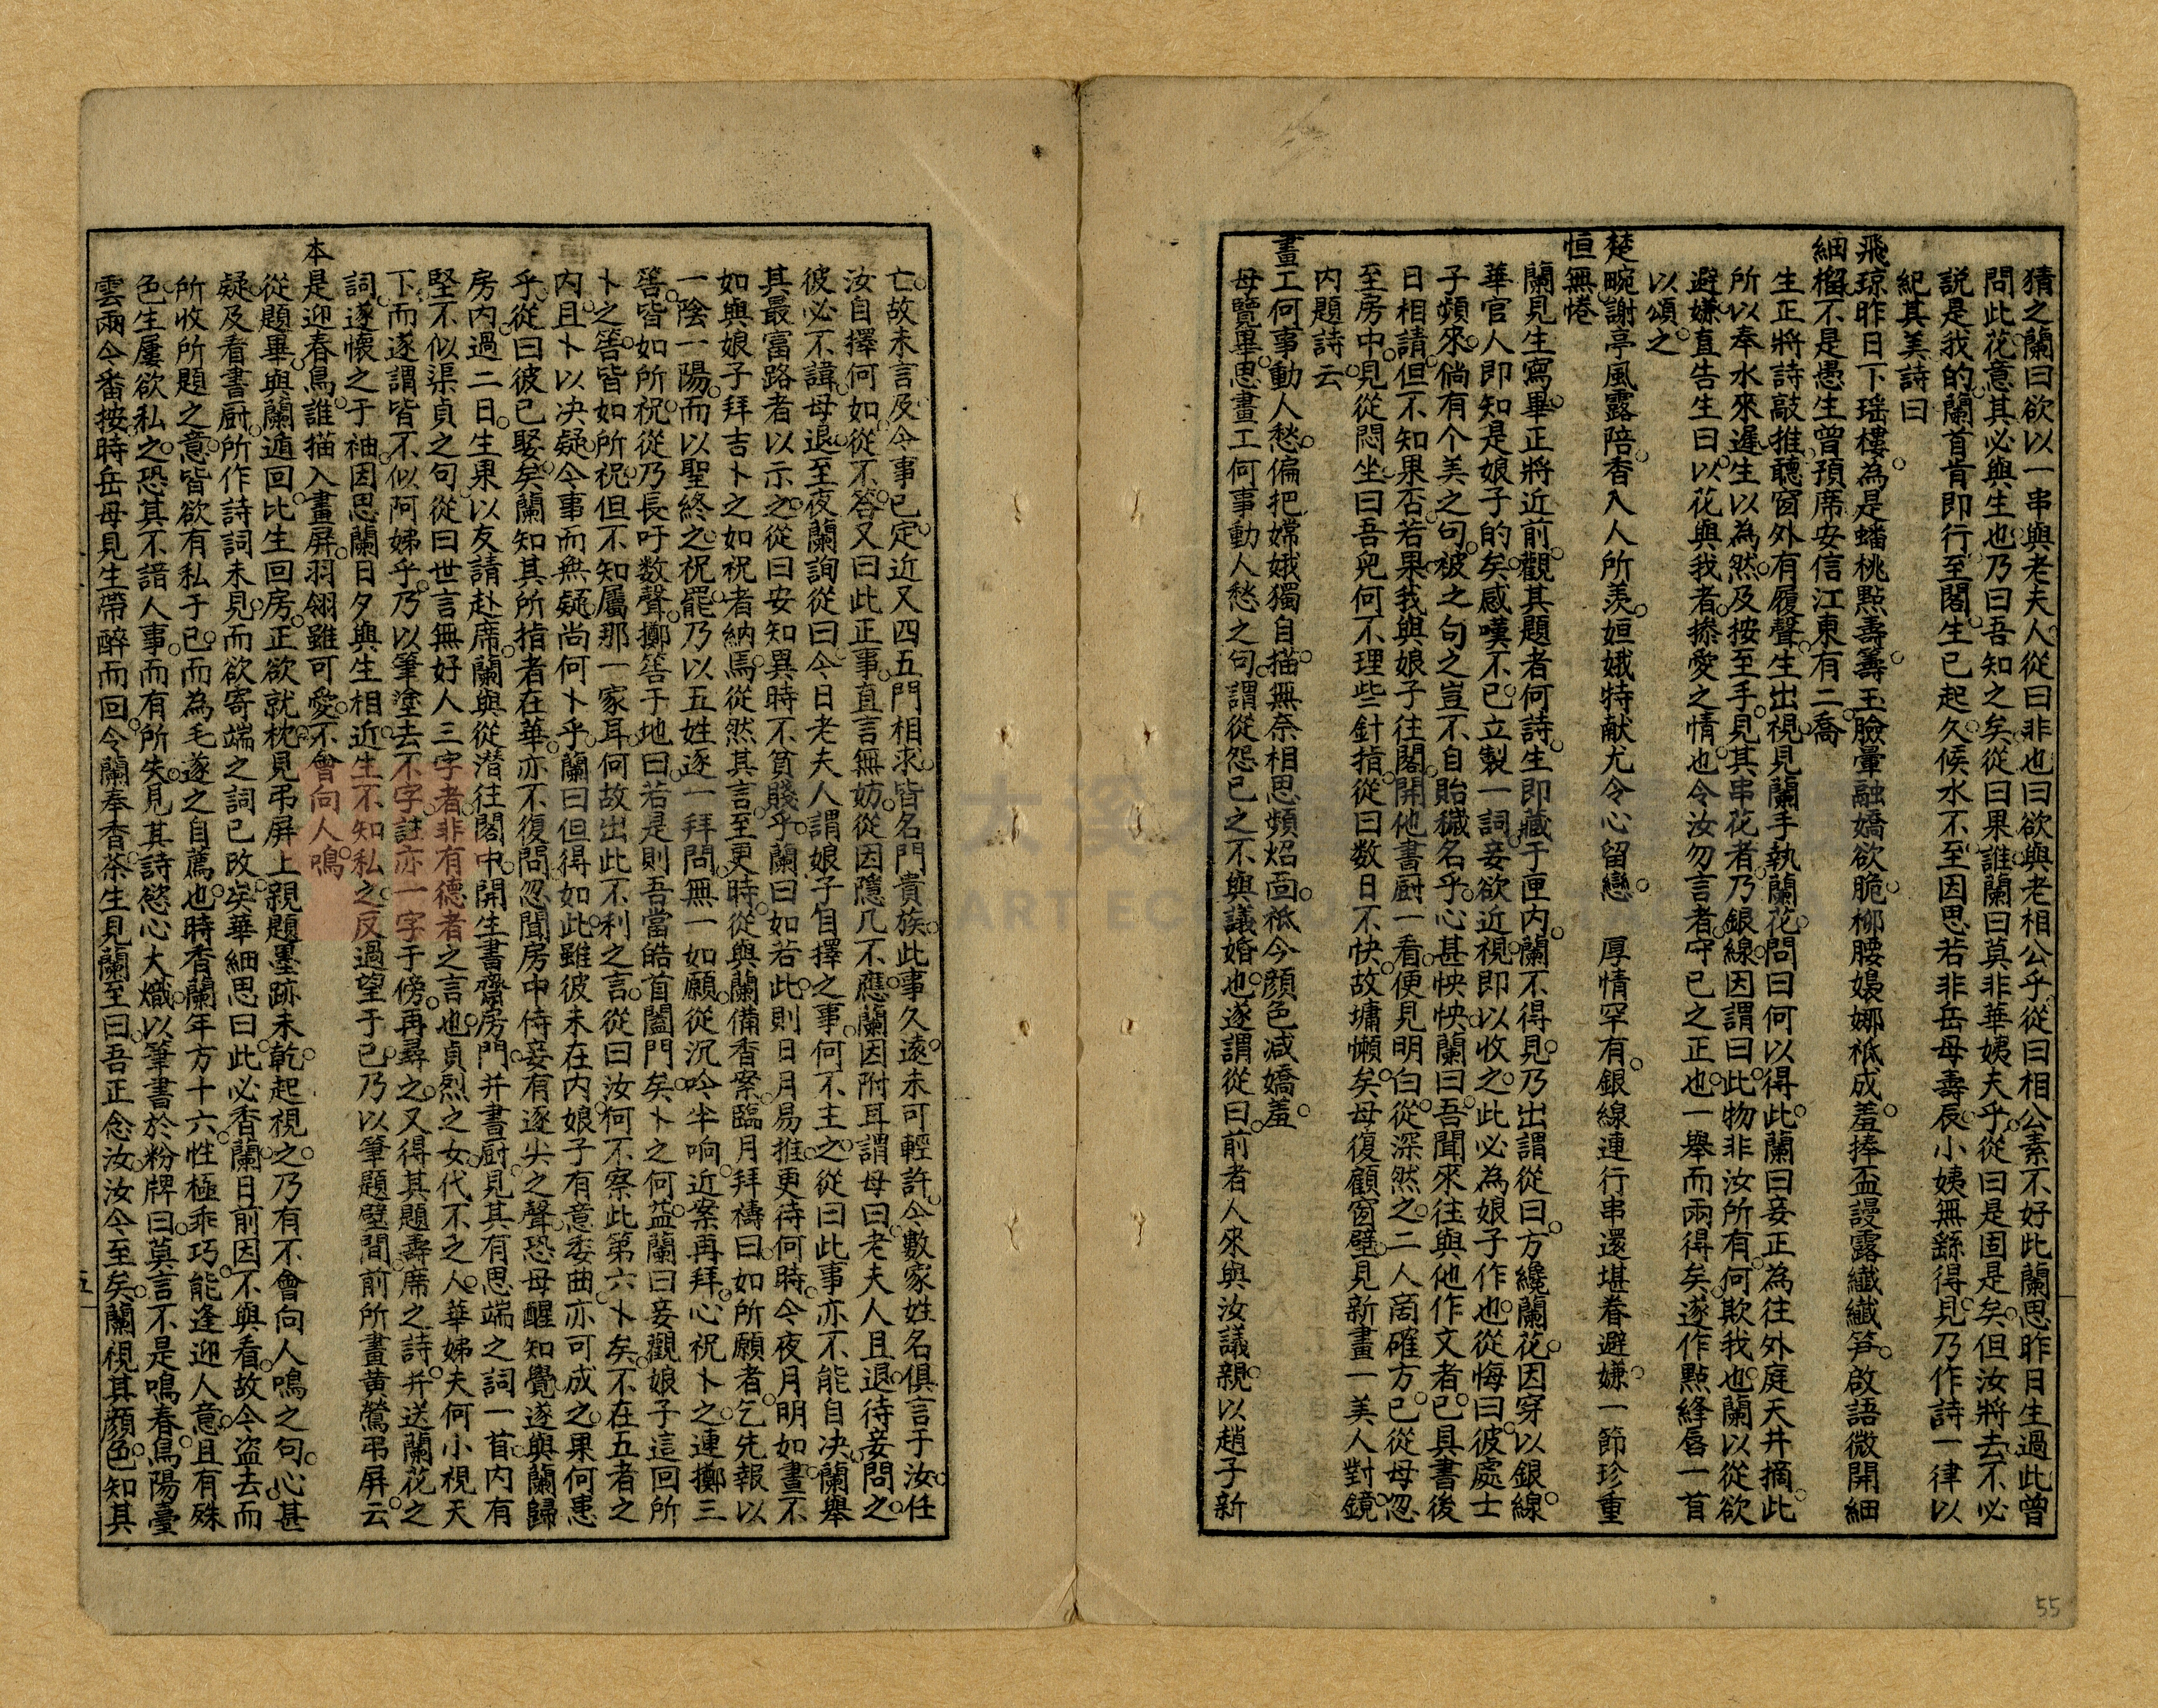 猜之蘭曰欲以一串與老夫人從曰非也曰欲與老相公乎從曰相公素不好此蘭思昨日生過此曾
問此花意其必與生也乃曰吾知之矣從曰果誰蘭曰莫非華姨夫乎從曰是固是矣但汝將去不必
説是我的蘭首肯即行至閣生已起久候水不至因思若非岳母壽辰小姨無繇得見乃作詩一律以
紀其美詩曰
飛瓊昨日下瑶樓為是蟠桃點壽籌玉臉暈融嬌欲脆柳腰嬝娜祗成羞捧盃謾露纖纖笋啟語微開細
細榴不是愚生曾預席安信江東有二喬
生正將詩敲推聽窗外有履聲生出視見蘭手執蘭花問曰何以得此蘭曰妾正為往外庭天井摘此
所以奉水來遲生以為然及按至手見其串花者乃銀線因謂曰此物非汝所有何欺我也蘭以從欲
避嫌直告生曰以花與我者捺愛之情也令汝勿言者守已之正也一舉而兩得矣遂作點絳唇一首
以頌之
楚畹謝亭風露陪香入人所羨姮娥特献尤令心留戀　厚情罕有銀線連行串還堪眷避嫌一節珍重
恒無惓
蘭見生寫畢正將近前觀其題者何詩生即藏于匣内蘭不得見乃出謂從曰方纔蘭花因穿以銀線
華官人即知是娘子的矣感嘆不已立製一詞妾欲近視即以收之此必為娘子作也從悔曰彼處士
子頻來倘有个美之句被之句之豈不自貽穢名乎心甚怏怏蘭曰吾聞來往與他作文者已具書後
日相請但不知果否若果我與娘子往閣開他書厨一看便見明白從深然之二人啇確方已從母忽
至房中見從悶坐曰吾兒何不理些針指從曰数日不快故墉懶矣母復顧窗壁見新畫一美人對鏡
内題詩云
畫工何事動人愁偏把嫦娥獨自描無奈相思頻炤面祗今顔色减嬌羞
母覽畢思畫工何事動人愁之句謂從怨已之不與議婚也遂謂從曰前者人來與汝議親以趙子新
亡故未言及今事已定近又四五門相求皆名門貴族此事久遠未可輕許今數家姓名俱言于汝任
汝自擇何如從不答又曰此正事直言無妨從因隱几不應蘭因附耳謂母曰老夫人且退待妾問之
彼必不諱母退至夜蘭詢從曰今日老夫人謂娘子自擇之事何不主之從曰此事亦不能自决蘭舉
其最富路者以示之從曰安知異時不貧賤乎蘭曰如若此則日月易推更待何時今夜月明如晝不
如與娘子拜吉卜之如祝者納馬從然其言至更時從與蘭備香案臨月拜禱曰如所願者乞先報以
一陰一陽而以聖終之祝罷乃以五姓逐一拜問無一如願從沉吟半响近案再拜心祝卜之連擲三
筶皆如所祝從乃長吁数聲擲筶于地曰若是則吾當皓首閨門矣卜之何益蘭曰妾觀娘子這回所
卜之筶皆如所祝但不知屬那一家耳何故出此不利之言從曰汝何不察此第六卜矣不在五者之
内且卜以决疑今事而無疑尚何卜乎蘭曰但得如此雖彼未在内娘子有意委曲亦可成之果何患
乎從曰彼已娶矣蘭知其所指者在華亦不復問忽聞房中侍妾有逐尖之聲恐母醒知覺遂與蘭歸
房内過二日生果以友請赴席蘭與從潜往閣中開生書齋房門并書厨見其有思端之詞一首内有
堅不似渠貞之句從曰世言無好人三字者非有德者之言也貞烈之女代不之人華姊夫何小視天
下而遂謂皆不似阿姊乎乃以筆塗去不字註亦一字于傍再尋之又得其題壽席之詩并送蘭花之
詞遂懷之于袖因思蘭日夕與生相近生不知私之反過望于已乃以筆題壁間前所畫黄鶯弔屏云
本是迎春鳥誰描入畫屏羽翎雖可愛不會向人鳴
從題畢與蘭遁回比生回房正欲就枕見弔屏上親題墨跡未乾起視之乃有不會向人鳴之句心甚
疑及看書厨所作詩詞未見而欲寄端之詞已改矣華細思曰此必香蘭日前因不與看故今盜去而
所收所題之意皆欲有私于已而為毛遂之自薦也時香蘭年方十六性極乖巧能逢迎人意且有殊
色生屢欲私之恐其不諳人事而有所失見其詩慾心大熾以筆書於粉牌曰莫言不是鳴春鳥陽臺
雲雨今番按時岳母見生帶醉而回令蘭奉香茶生見蘭至曰吾正念汝汝今至矣蘭視其顔色知其
五
55